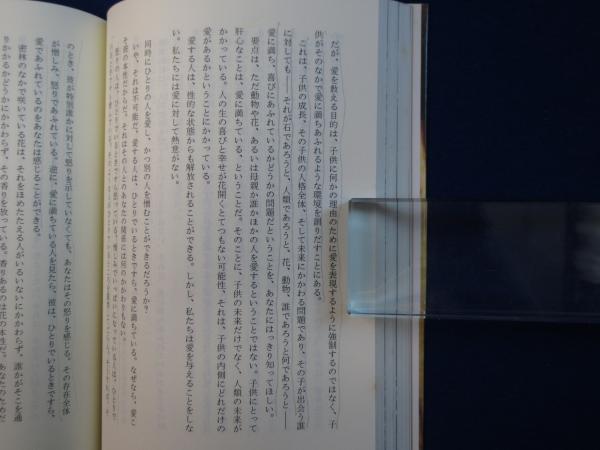 だが、愛を教える目的は、子供に何かの理由のために愛を表現するように強制するのではなく、子
供がそのなかで愛に満ちあふれるような環境を創りだすことにある。
これは、子供の成長、その子供の人格全体、そして未来にかかわる問題であり、その子が出会う誰
に対しても――それが石であろうと、人類であろうと、花、動物、誰であろうと何であろうと――
愛に満ち、喜びにあふれているかどうかの問題だということを、あなたにはっきり知ってほしい。
要点は、ただ動物や花、あるいは母親か誰かほかの人を愛するということではない。子供にとって
肝心なことは、愛に満ちている、ということだ。そのことに、子供の未来だけでなく、人類の未来が
かかっている。人の生の喜びと幸せが花開くとてつもない可能性、それは、子供の内側にどれだけの
愛があるかということにかかっている。
愛する人は、性的な状態からも解放されることができる。しかし、私たちは愛を与えることをしな
い。私たちには愛に対して熱意がない。
同時にひとりの人を愛し、かつ別の人を憎むことができるだろうか?
いや、それは不可能だ。愛する人は、ひとりでいるときですら、愛に満ちている。なぜなら、愛こ
そ彼の本性だからだ。それはその人とのあなたの関係には何のかかわりもない。
のとき、彼が特別誰かに対して怒りを示していなくても、あなたはその怒りを感じる。その存在全体
が憎しみ、怒りであふれている。逆に、愛に満ちている人を見たら、彼は、ひとりでいるときですら、
愛であふれているのをあなたは感じることができる。
密林のなかで咲いている花は、それをほめたたえる人がいるいないにかかわらず、誰かがそこを通
りかかるかどうかにかかわらず、その香りを放っている。香りあるのは花の本性だ。あなたのためだ